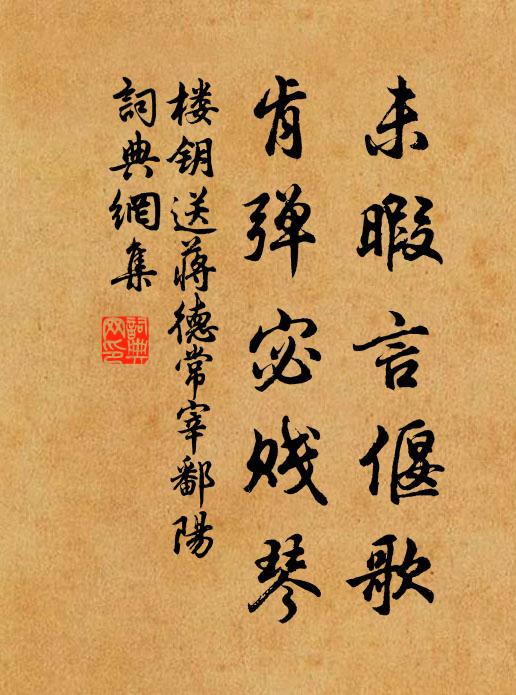 未暇言偃歌
肯弹宓贱琴
楼钥送蒋德常宰鄱陽
詞典網集
詞典網印